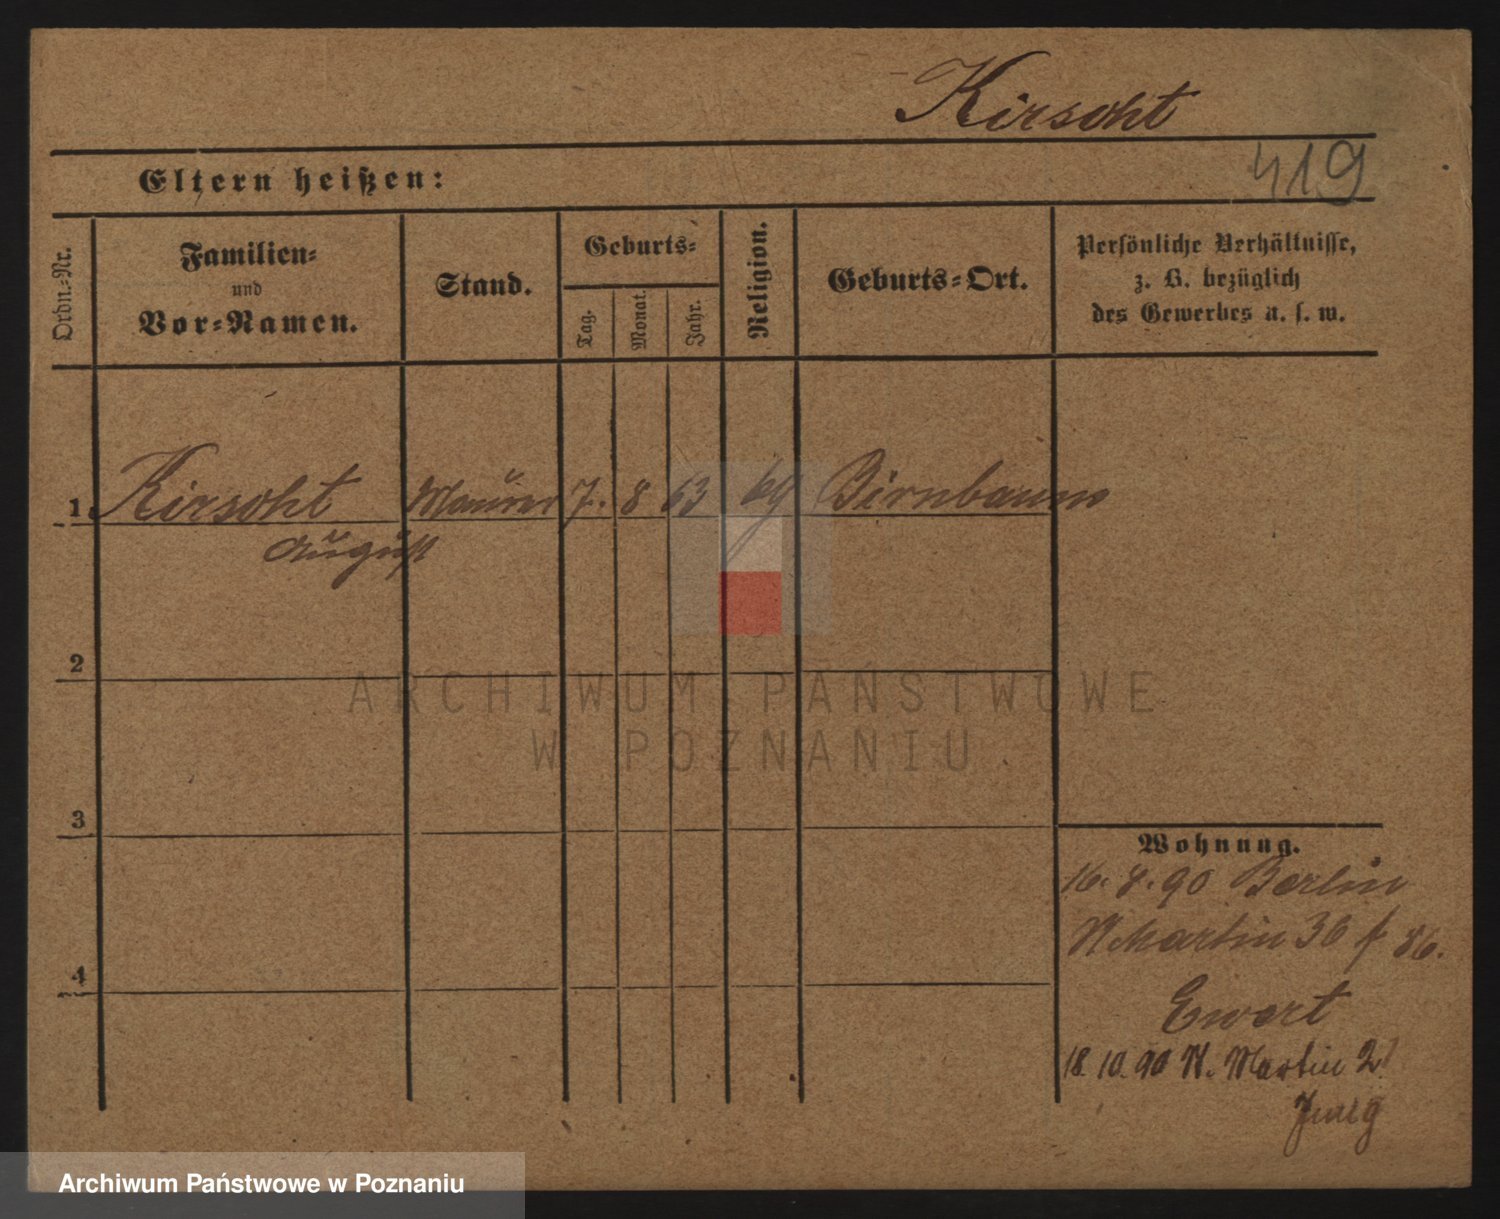 Kirsoht
419
Eltern heißen:
Ordn.-Nr.
Familien-
und
Vor-Namen.
Stand.
Geburts-
Tag.
Monat.
Jahr.
Religion.
Geburts-Ort.
Persönliche Verhältnisse,
z. B. bezüglich
des Gewerbes u. s. w.
1. Kirsoht Maurer 7. 8 63 kg Birnbaum
August
2
3
4
Wohnung.
16. 8. 90 Berlin
St Martin 36 f 86.
Ewert
18. 10. 90 St. Martin 2
ARCHIWUM PAŃSTWOWE
W POZNANIU
Archiwum Państwowe w Poznaniu